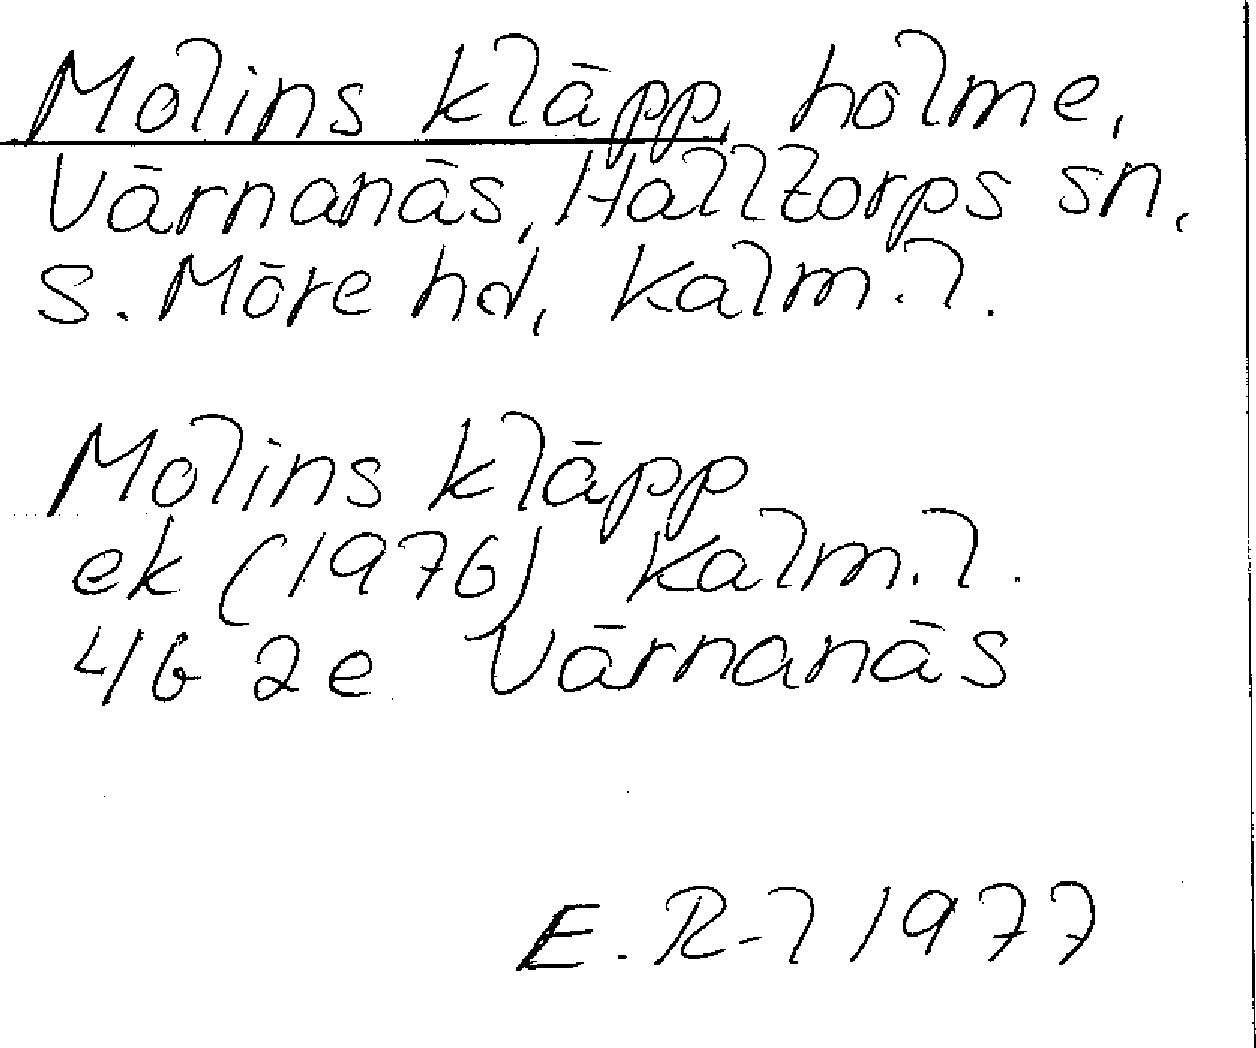 Molins kläpp, holme,
Värnanäs, Halltorps sn,
s. Möre hd, Kalm. l.
Molins kläpp
ek (1976) Kalm. l.
4G 2e Värnanäs
E. R-l 1977